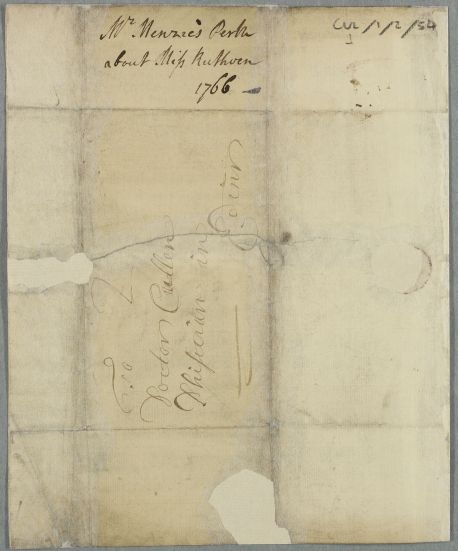 Mr Menzies Perth
about Miss Ruthven
1766
CUL/1/2/54
1
To
Doctor Cullen
Phisician in
Edinr